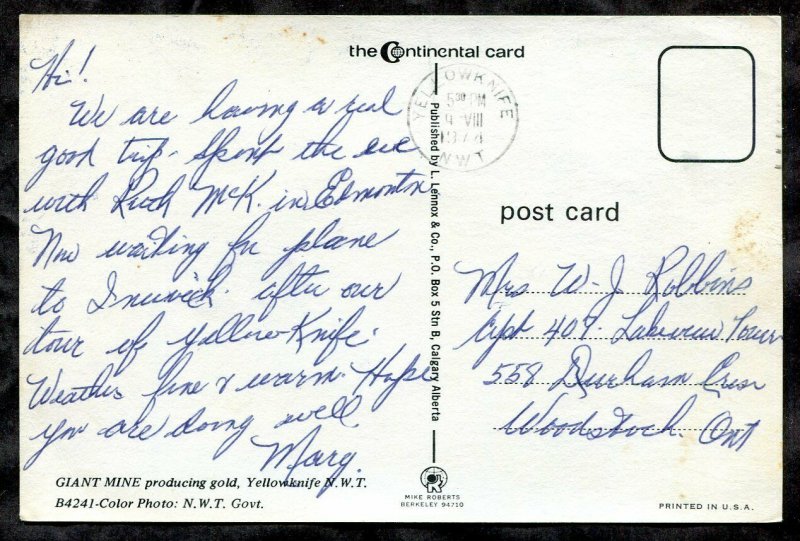 the Continental card
Hi!
We are having a real
good trip - spent the eve
with Ruth McK. in Edmonton
Now waiting for plane
to Inuvick after our
tour of Yellow Knife.
Weather fine & warm. Hope
you are doing well.
Marg.
GIANT MINE producing gold, Yellowknife N.W.T.
B4241-Color Photo: N.W.T. Govt.
Published by L. Lennox & Co., P.O. Box 5 Stn B, Calgary Alberta
MIKE ROBERTS
BERKELEY 94710
YELLOWKNIFE
5 30 PM
9 VIII
1974
N.W.T
post card
Mrs W. J. Robbins
Apt 407. Lakeview Tower
558 Durham Cres
Woodstock. Ont
PRINTED IN U.S.A.